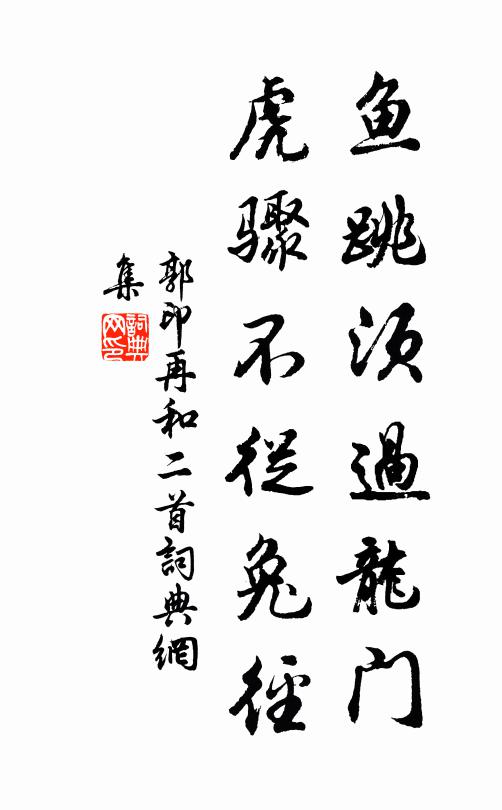 鱼跳须過龍门
虎骤不從兔徑
郭印再和二首詞典網
集
詞典
网印